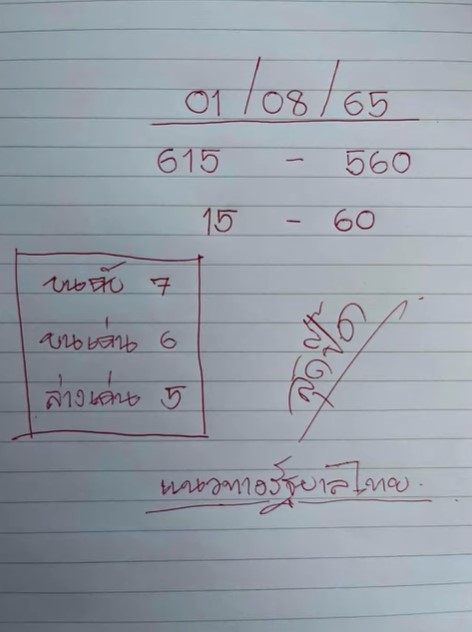 01/08/65
615 - 560
15 - 60
บนดับ 7
บนเด่น 6
ล่างเด่น 5
แนวทางรัฐบาลไทย.